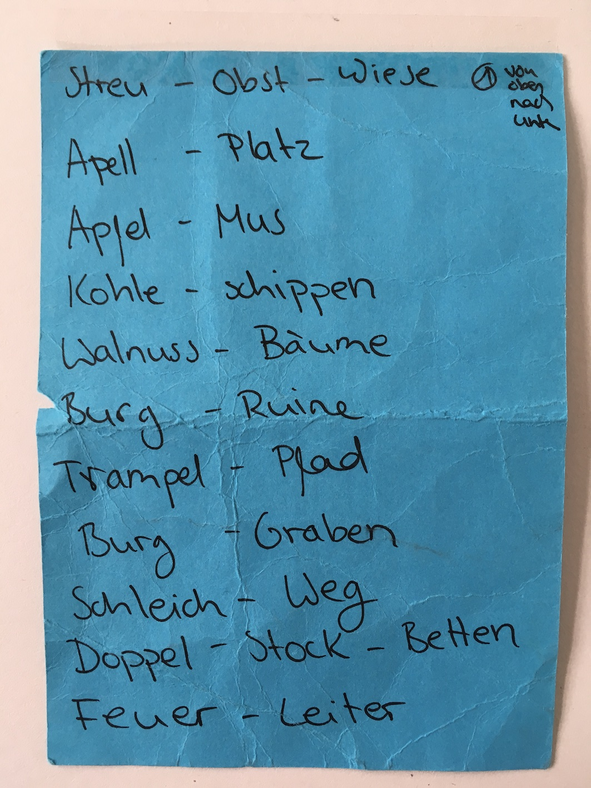 Streu - Obst - Wiese ① von
oben
nach
unten
Apell - Platz
Apfel - Mus
Kohle - schippen
Walnuss - Bäume
Burg - Ruine
Trampel - Pfad
Burg - Graben
Schleich - Weg
Doppel - Stock - Betten
Feuer - Leiter